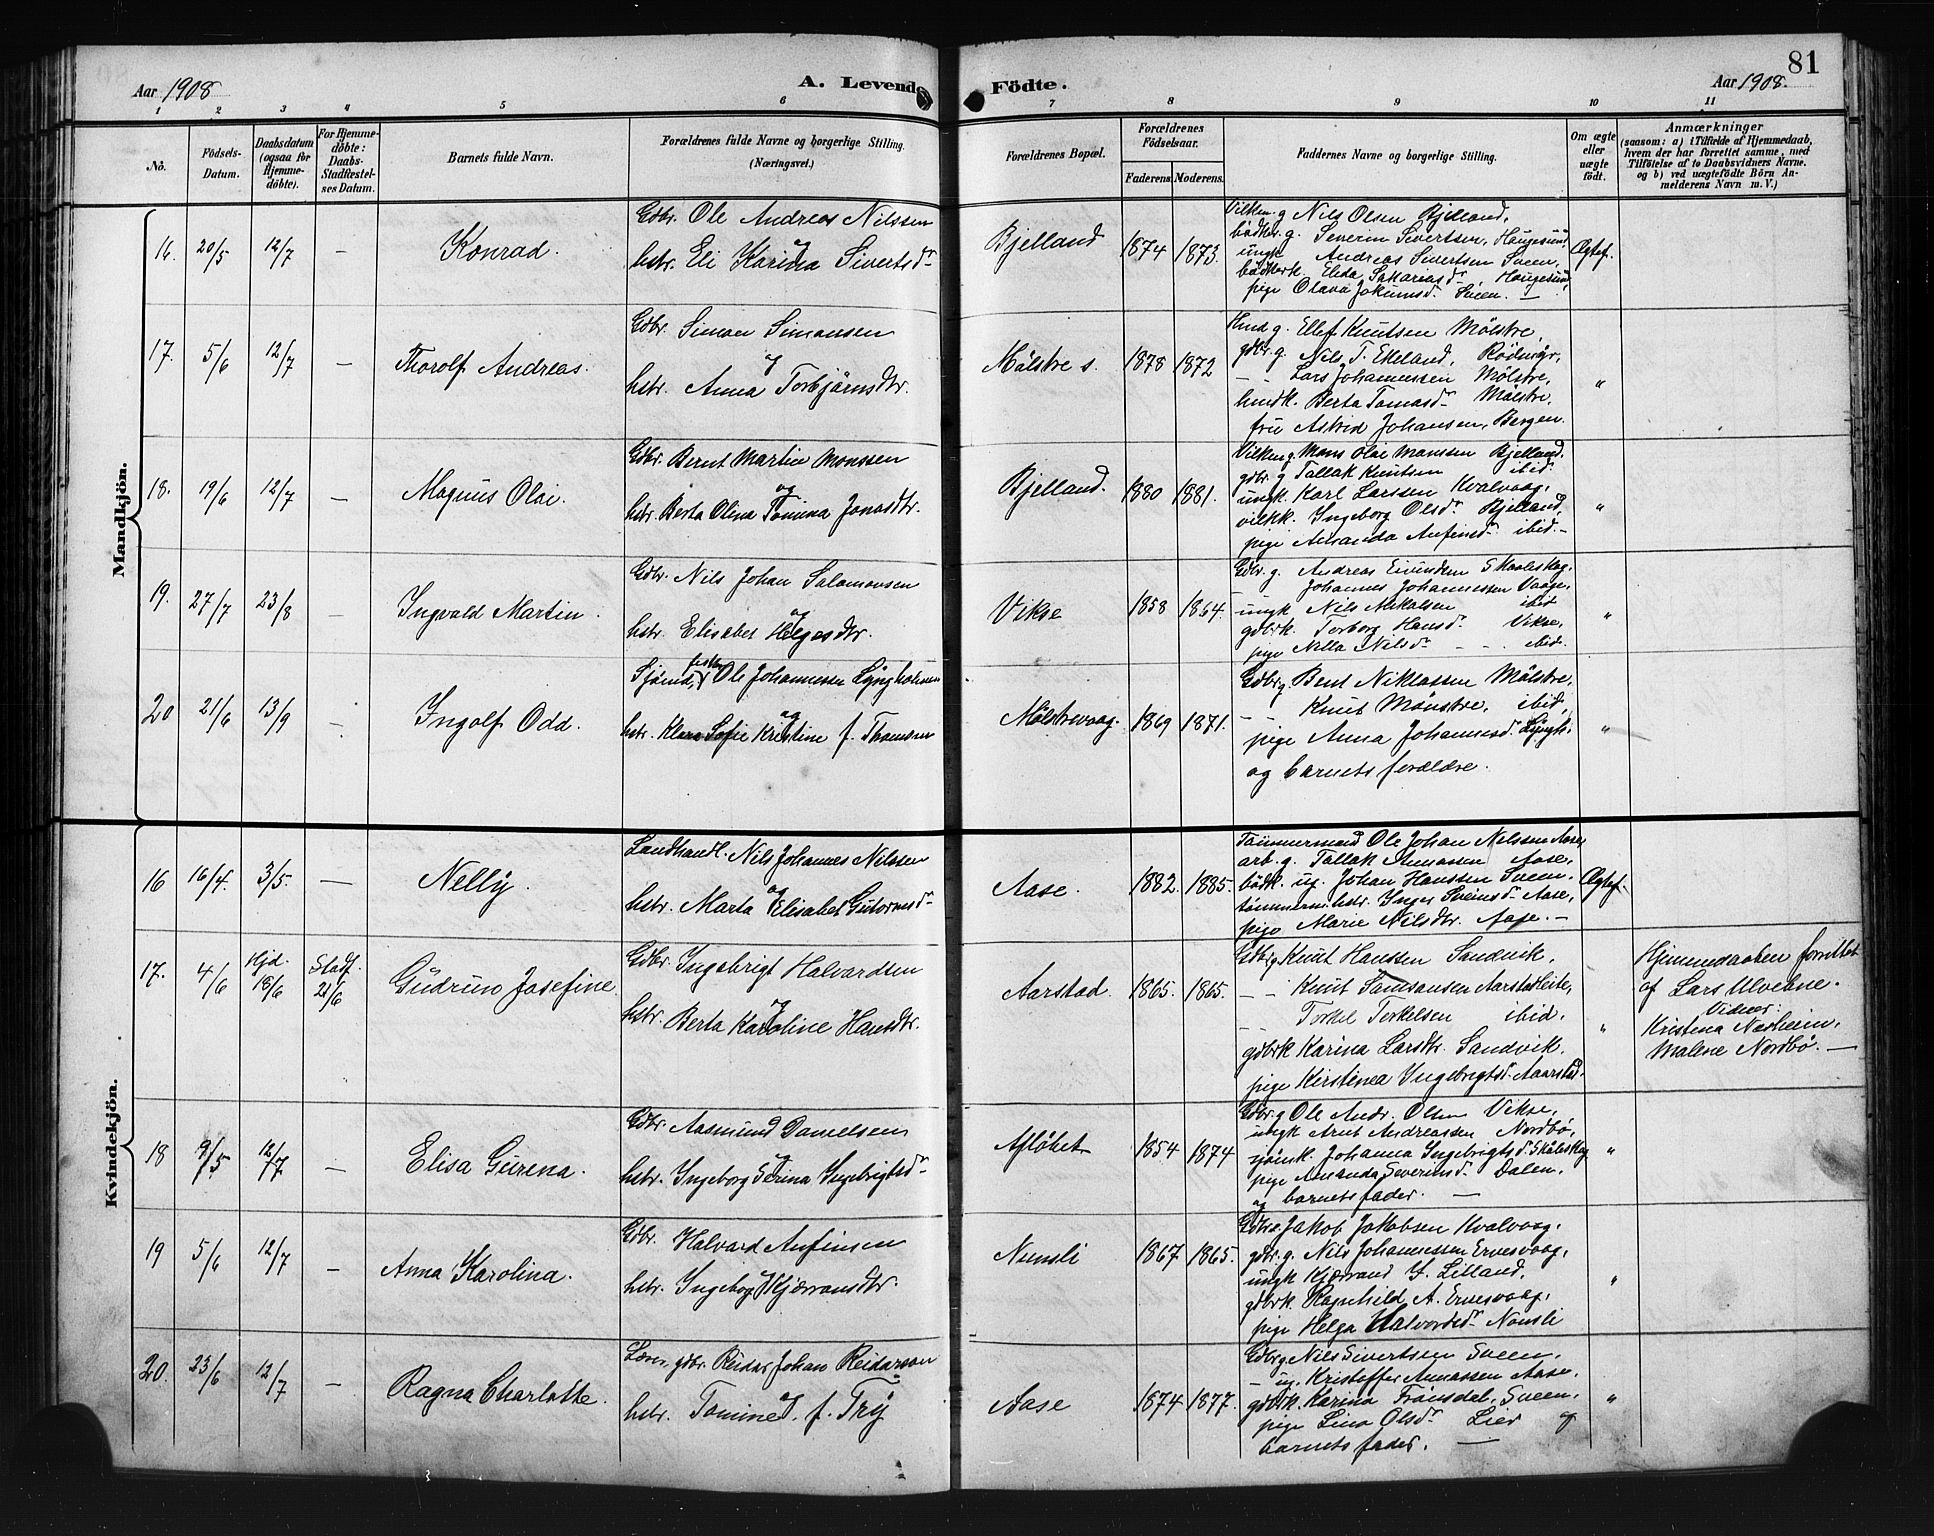 81
Aar 1908 A. Levende Födte. Aar 1908.
1 2 3 4 5 6 7 8 9 10 11
No.
Födsels-Datum.
Daabsdatum (ogsaa for Hjemme-döbte).
For Hjemme-döbte: Daabs-Stadfæstel-ses Datum.
Barnets fulde Navn.
Forældrenes fulde Navne og borgerlige Stilling.
(Næringsvei.)
Forældrenes Bopæl.
Forældrenes Födselsaar.
Faderens. Moderens.
Faddernes Navne og borgerlige Stilling.
Om ægte eller uægte födt.
Anmærkninger
(saasom: a) i Tilfælde af Hjemmedaab, hvem der har forrettet samme, med Tilföielse af to Daabsvidners Navne. og b) ved uægtefödte Börn An-melderens Navn m. V.)
Mandkjön.
16. 20/5 12/7 — Konrad.
Gdbr. Ole Andreas Nilssen
og
hstr. Eli Karina Sivertsdr
Bjelland 1874 1873.
Vilkm. g Nils Olsen Bjelland,
bödker g. Severin Sivertsen, Haugesund,
ungk Andreas Sivertsen Sveen,
bödkerk. Elida Sakariasdr Haugesund,
pige Olava Jokumsdr Sveen. —
Ægtef.
17. 5/6 12/7 — Thorolf Andreas.
Gdbr. Simon Simonsen
og
hstr. Anna Torbjörnsdtr.
Mölstre s. 1878 1872
Hmd g. Ellef Knutsen Mölstre,
gdbr. g. Nils T. Ekeland, Rödmyr,
— — Lars Johannessen Mölstre,
hmdk. Berta Tomasdr Mölstre,
fru Astrid Johansen, Bergen.
"
18. 19/6 12/7 — Magnus Olai.
Gdbr. Bernt Martin Monssen
og
hstr. Berta Olina Tomina Jonasdtr.
Bjelland. 1880 1881.
Vilkm g. Mons Olai Monssen Bjelland.
gdbr. g Tallak Knutsen ibid.
ungk. Karl Larssen Kvalvaag,
vilkk. Ingeborg Olsdr Bjelland,
pige Amanda Anfinsdr ibid. —
"
19. 27/7 23/8 — Ingvald Martin.
Gdbr. Nils Johan Salamonsen
og
hstr. Elisabet Helgesdtr.
Vikse 1858 1864.
Gdbr. g. Andreas Eivindsen Skaalskog,
Johannes Johannessen Vaage,
ungk Nils Mikalsen ibid
gdbrk. Torborg Hansd. Vikse,
pige Nilla Nilsdr — ibid.
"
20 21/6 13/9 — Ingolf Odd.
Sjömd, fisker Ole Johannessen Lyngholmen
og
hstr. Klara Sofie Kristine f. Thomsen
Mölstrevaag. 1869 1871.
Gdbr g. Bent Niklassen Mölstre,
— Knut Mönstre, ibid,
pige Anna Johannesd. Lyngh.
og barnets forældre.
"
Kvindekjön.
16 16/4. 3/5. — Nelly.
Landhandl. Nils Johannes Nilssen
og
hstr. Marta Elisabet Gutormsdr
Aase. 1882. 1885.
Tömmermand Ole Johan Nilssen Aase,
arb. g. Tallak Amassen Aase,
bödk. ug. Johan Hanssen Sveen,
tömmerm. hstr. Inger Sveinsdr Aase,
pige Marie Nilsdtr. Aase. —
Ægtef.
17. 4/6 Hjd. 18/6 Stadf. 21/6 Gudrun Josefine.
Gdbr. Ingebrigt Halvardsen
og
hstr. Berta Karoline Hansdtr.
Aarstad. 1865. 1865.
Gdbr g Knut Hanssen Sandvik,
— — Knut Samsonsen Aarstadleite,
— Torkel Torkelsen ibid.
gdbrk Karina Larsdtr. Sandvik.
pige Kirstinea Ingebrigtsd. Aarstad.
"
Hjemmedaaben forrettet
af Lars Ulvebne.
Vidner:
Kristena Nesheim,
Malene Nordbö. —
18 8/5 12/7 — Elisa Gurena.
Gdbr Aasmund Danielsen
og
hstr. Ingeborg Serina Ingebrigtsdr
Aflöbet 1854 1874
Gdbr. g Ole Andr. Olsen Vikse,
ungk Arnt Andreassen Nordbö,
sjömk. Johanna Ingebrigtsd. Skålskog
pige Amanda Severinsd. Dalen,
og barnets fader. —
"
19 5/6 12/7 — Anna Karolina.
Gdbr. Halvard Anfinsen
og
hstr. Ingeborg Kjærrandsdtr.
Nonsli 1867 1865.
Gdbr. g. Jakob Jakobsen Kvalvaag,
gdbr. g. Nils Johannessen Ervesvaag,
ungk Kjærrand Y. Lilland,
gdbrk. Ragnhild A. Ervesvaag,
pige Helga Halvordsdr Nonsli
"
20. 23/6 12/7 — Ragna Charlotte.
Lærer, gdbr. Reidar Johan Reidarson
og
hstr. Tomine f. Try
Aase 1874 1877.
Gdbr g Nils Sivertsen Sveen,
— ug. Kristoffer Amassen Aase.
gdbrk. Karina Frönsdal, Sveen,
pige Lina Olsdr Lier og
barnets fader. —
"